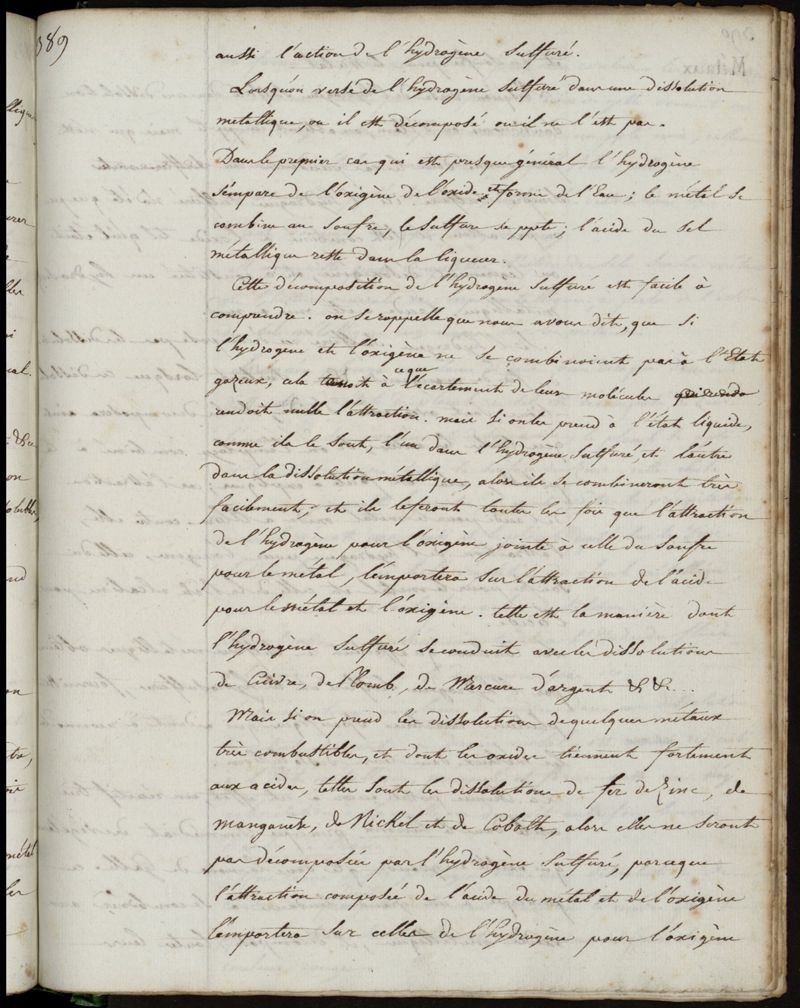 389
aussi l'action de l'hydrogène sulfuré.
Lorsqu'on verse de l'hydrogène sulfuré dans une dissolution
métallique, ou il est décomposé ou il ne l'est pas.
Dans le premier cas qui est presque général l'hydrogène
s'empare de l'oxigène de l'oxide et forme de l'Eau; le métal se
combine au soufre, le sulfure se ppte; l'acide du sel
métallique reste dans la liqueur.
Cette décomposition de l'hydrogène sulfuré est facile à
comprendre. on se rappelle que nous avons dit, que si
l'hydrogène et l'oxigène ne se combinoient pas à l'Etat
gazeux, cela tenoit à ce que l'écartement de leurs molécules
rendoit nulle l'attraction. mais si on les prend à l'état liquide,
comme ils le sont, l'un dans l'hydrogène sulfuré et l'autre
dans la dissolution métallique, alors ils se combineront très
facilement; et ils le feront toutes les fois que l'attraction
de l'hydrogène pour l'oxigène jointe à celle du soufre
pour le métal, l'emportera sur l'attraction de l'acide
pour le métal et l'oxigène. telle est la manière dont
l'hydrogène sulfuré se conduit avec les dissolutions
de Cuivre, de Plomb, de Mercure d'argent &c &c...
Mais si on prend les dissolutions de quelques métaux
très combustibles, et dont les oxides tiennent fortement
aux acides, telles sont les dissolutions de fer de Zinc, de
manganèse, de Nickel et de Cobalt, alors elles ne seront
pas décomposées par l'hydrogène sulfuré, parceque
l'attraction composée de l'acide du métal et de l'oxigène
l'emportera sur celles de l'hydrogène pour l'oxigène